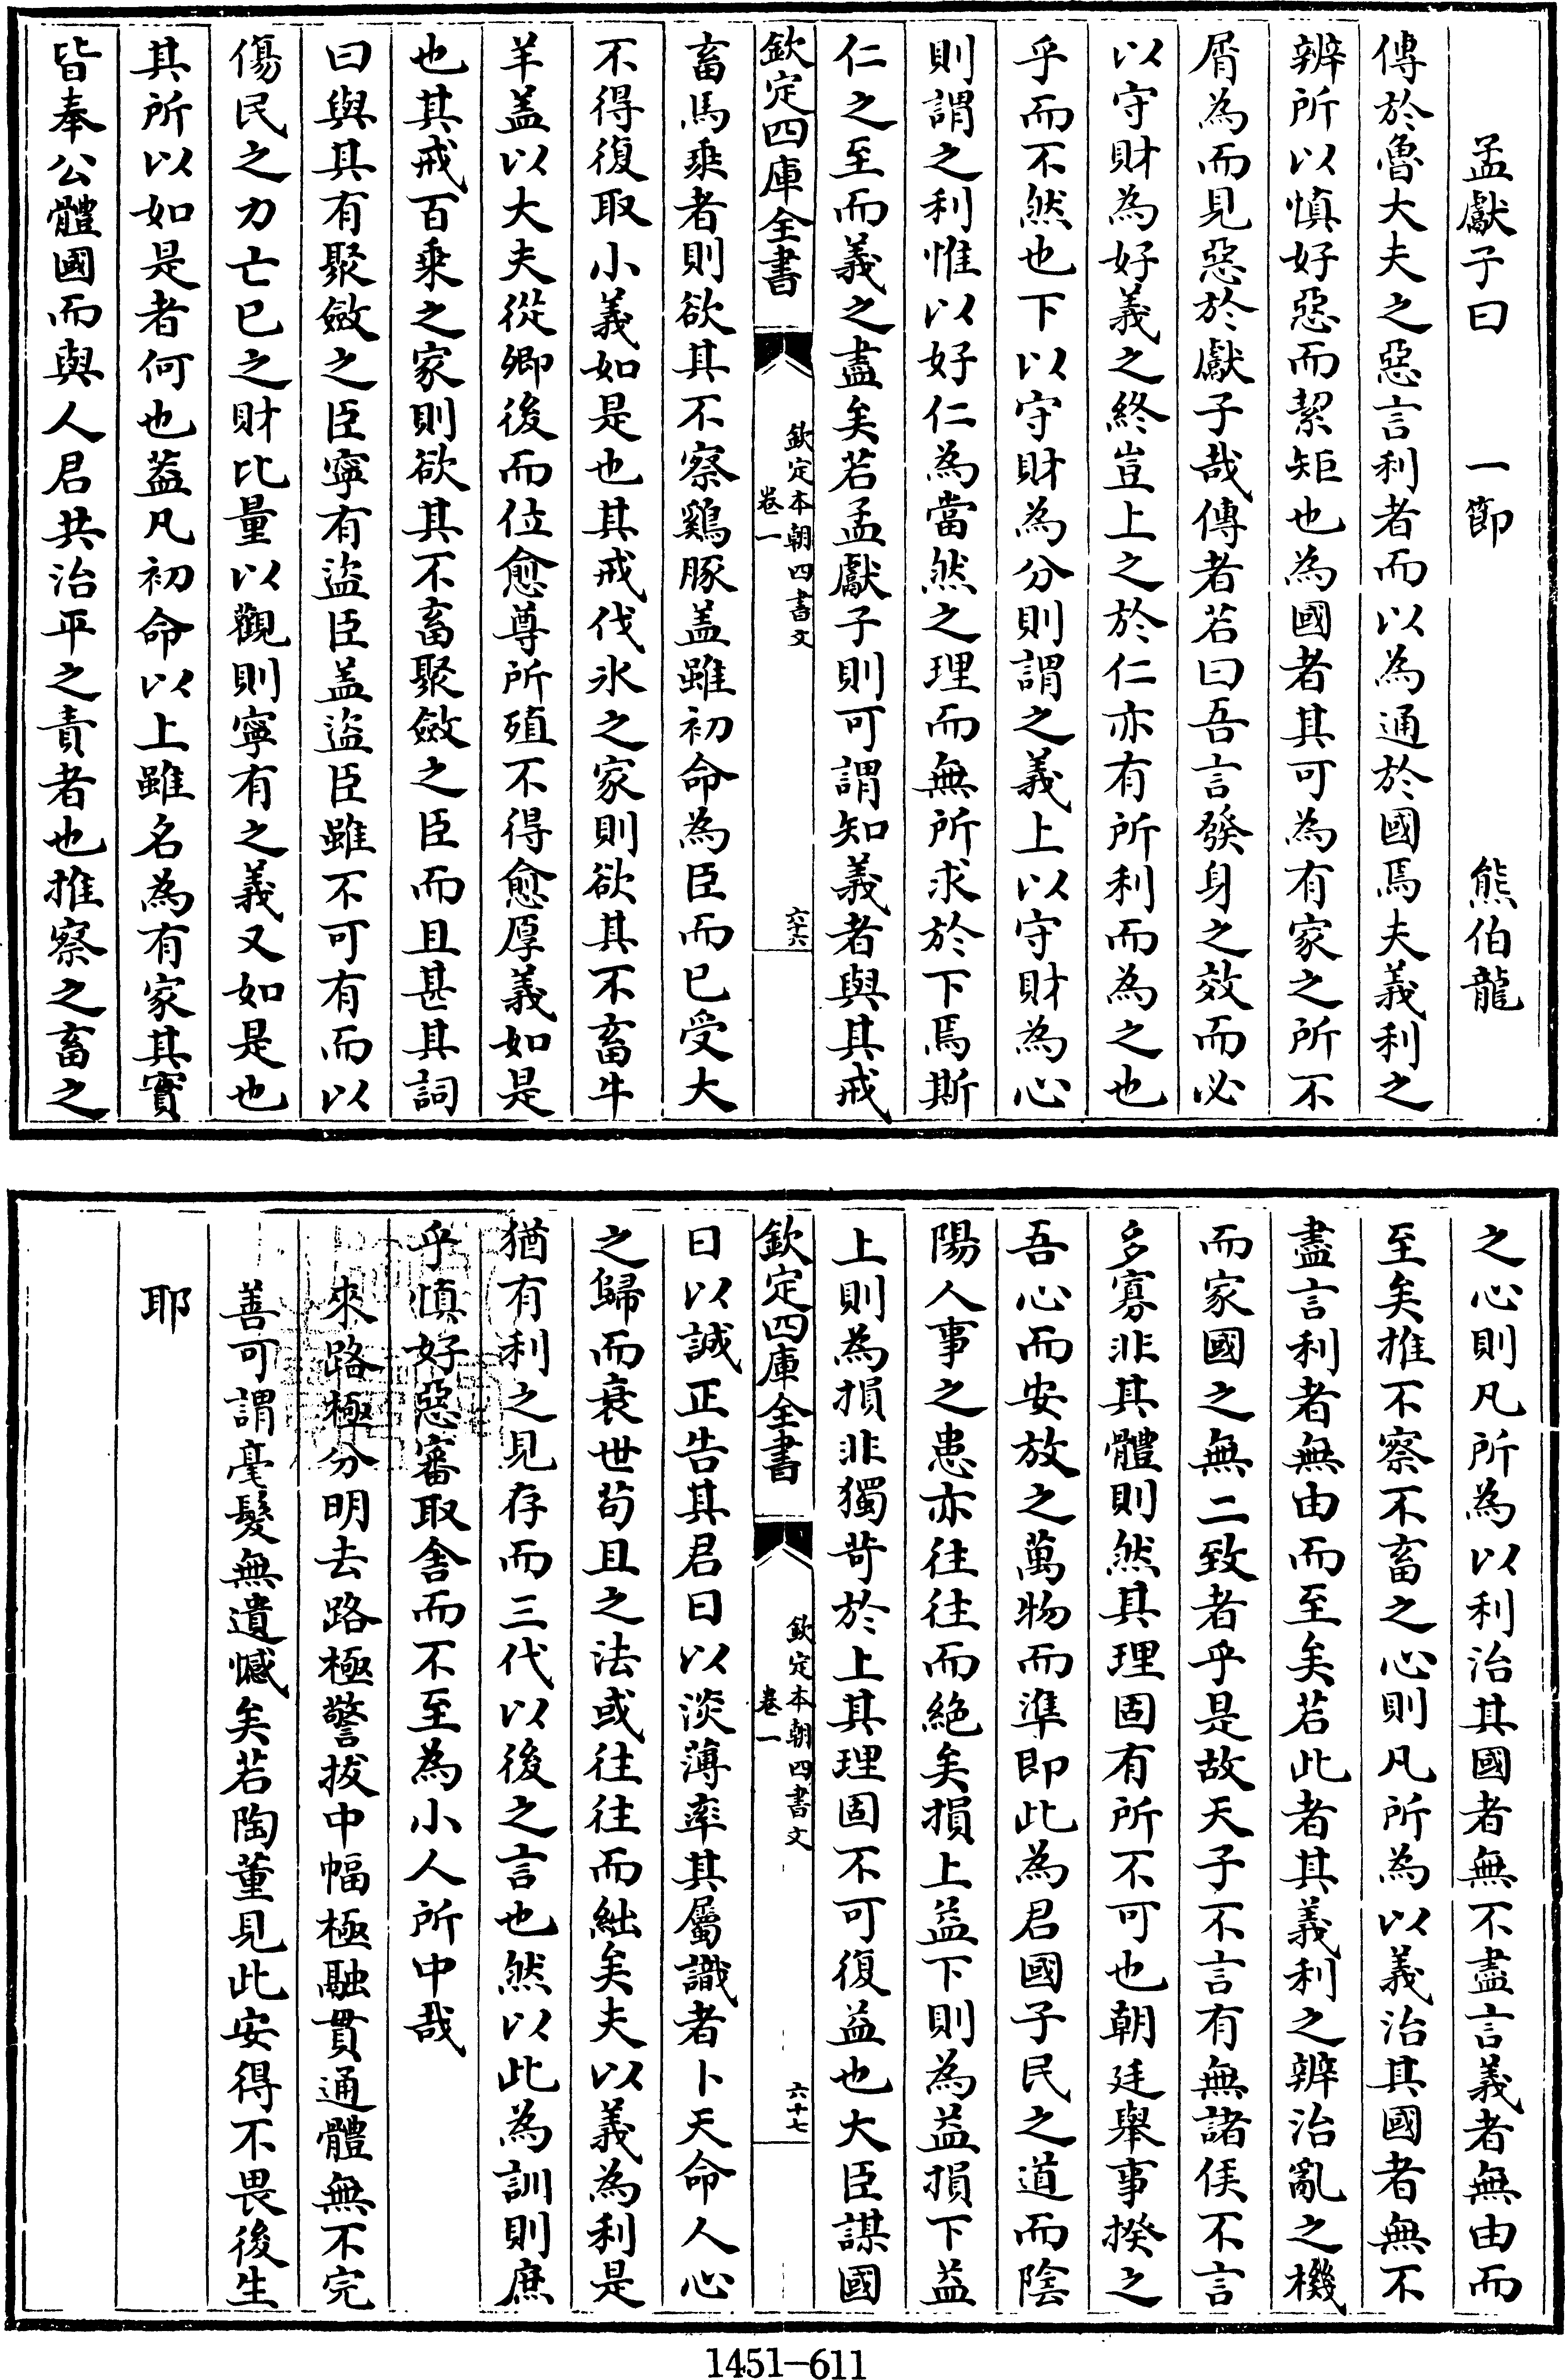 孟獻子曰　一節　熊伯龍
傳於魯大夫之惡言利者而以為通於國焉夫義利之
辨所以慎好惡而絜矩也為國者其可為有家之所不
屑為而見惡於獻子哉傳者若曰吾言發身之效而必
以守財為好義之終豈上之於仁亦有所利而為之也
乎而不然也下以守財為分則謂之義上以守財為心
則謂之利惟以好仁為當然之理而無所求於下焉斯
仁之至而義之盡矣若孟獻子則可謂知義者與其戒
欽定四庫全書
欽定本朝四書文
卷一
六十六
畜馬乘者則欲其不察鷄豚盖雖初命為臣而已受大
不得復取小義如是也其戒伐氷之家則欲其不畜牛
羊盖以大夫從卿後而位愈尊所殖不得愈厚義如是
也其戒百乘之家則欲其不畜聚斂之臣而且甚其詞
曰與其有聚斂之臣寧有盜臣盖盜臣雖不可有而以
傷民之力亡已之財比量以觀則寧有之義又如是也
其所以如是者何也葢凡初命以上雖名為有家其實
皆奉公體國而與人君共治平之責者也推察之畜之
之心則凡所為以利治其國者無不盡言義者無由而
至矣推不察不畜之心則凡所為以義治其國者無不
盡言利者無由而至矣若此者其義利之辨治亂之機
而家國之無二致者乎是故天子不言有無諸侯不言
多寡非其體則然其理固有所不可也朝廷舉事揆之
吾心而安放之萬物而準即此為君國子民之道而陰
陽人事之患亦往往而絶矣損上益下則為益損下益
上則為損非獨苛於上其理固不可復益也大臣謀國
欽定四庫全書
欽定本朝四書文
卷一
六十七
曰以誠正告其君曰以淡薄率其屬識者卜天命人心
之歸而衰世苟且之法或往往而絀矣夫以義為利是
猶有利之見存而三代以後之言也然以此為訓則庶
乎慎好惡審取舍而不至為小人所中哉
來路極分明去路極警拔中幅極融貫通體無不完
善可謂毫髮無遺憾矣若陶董見此安得不畏後生
耶
1451-611